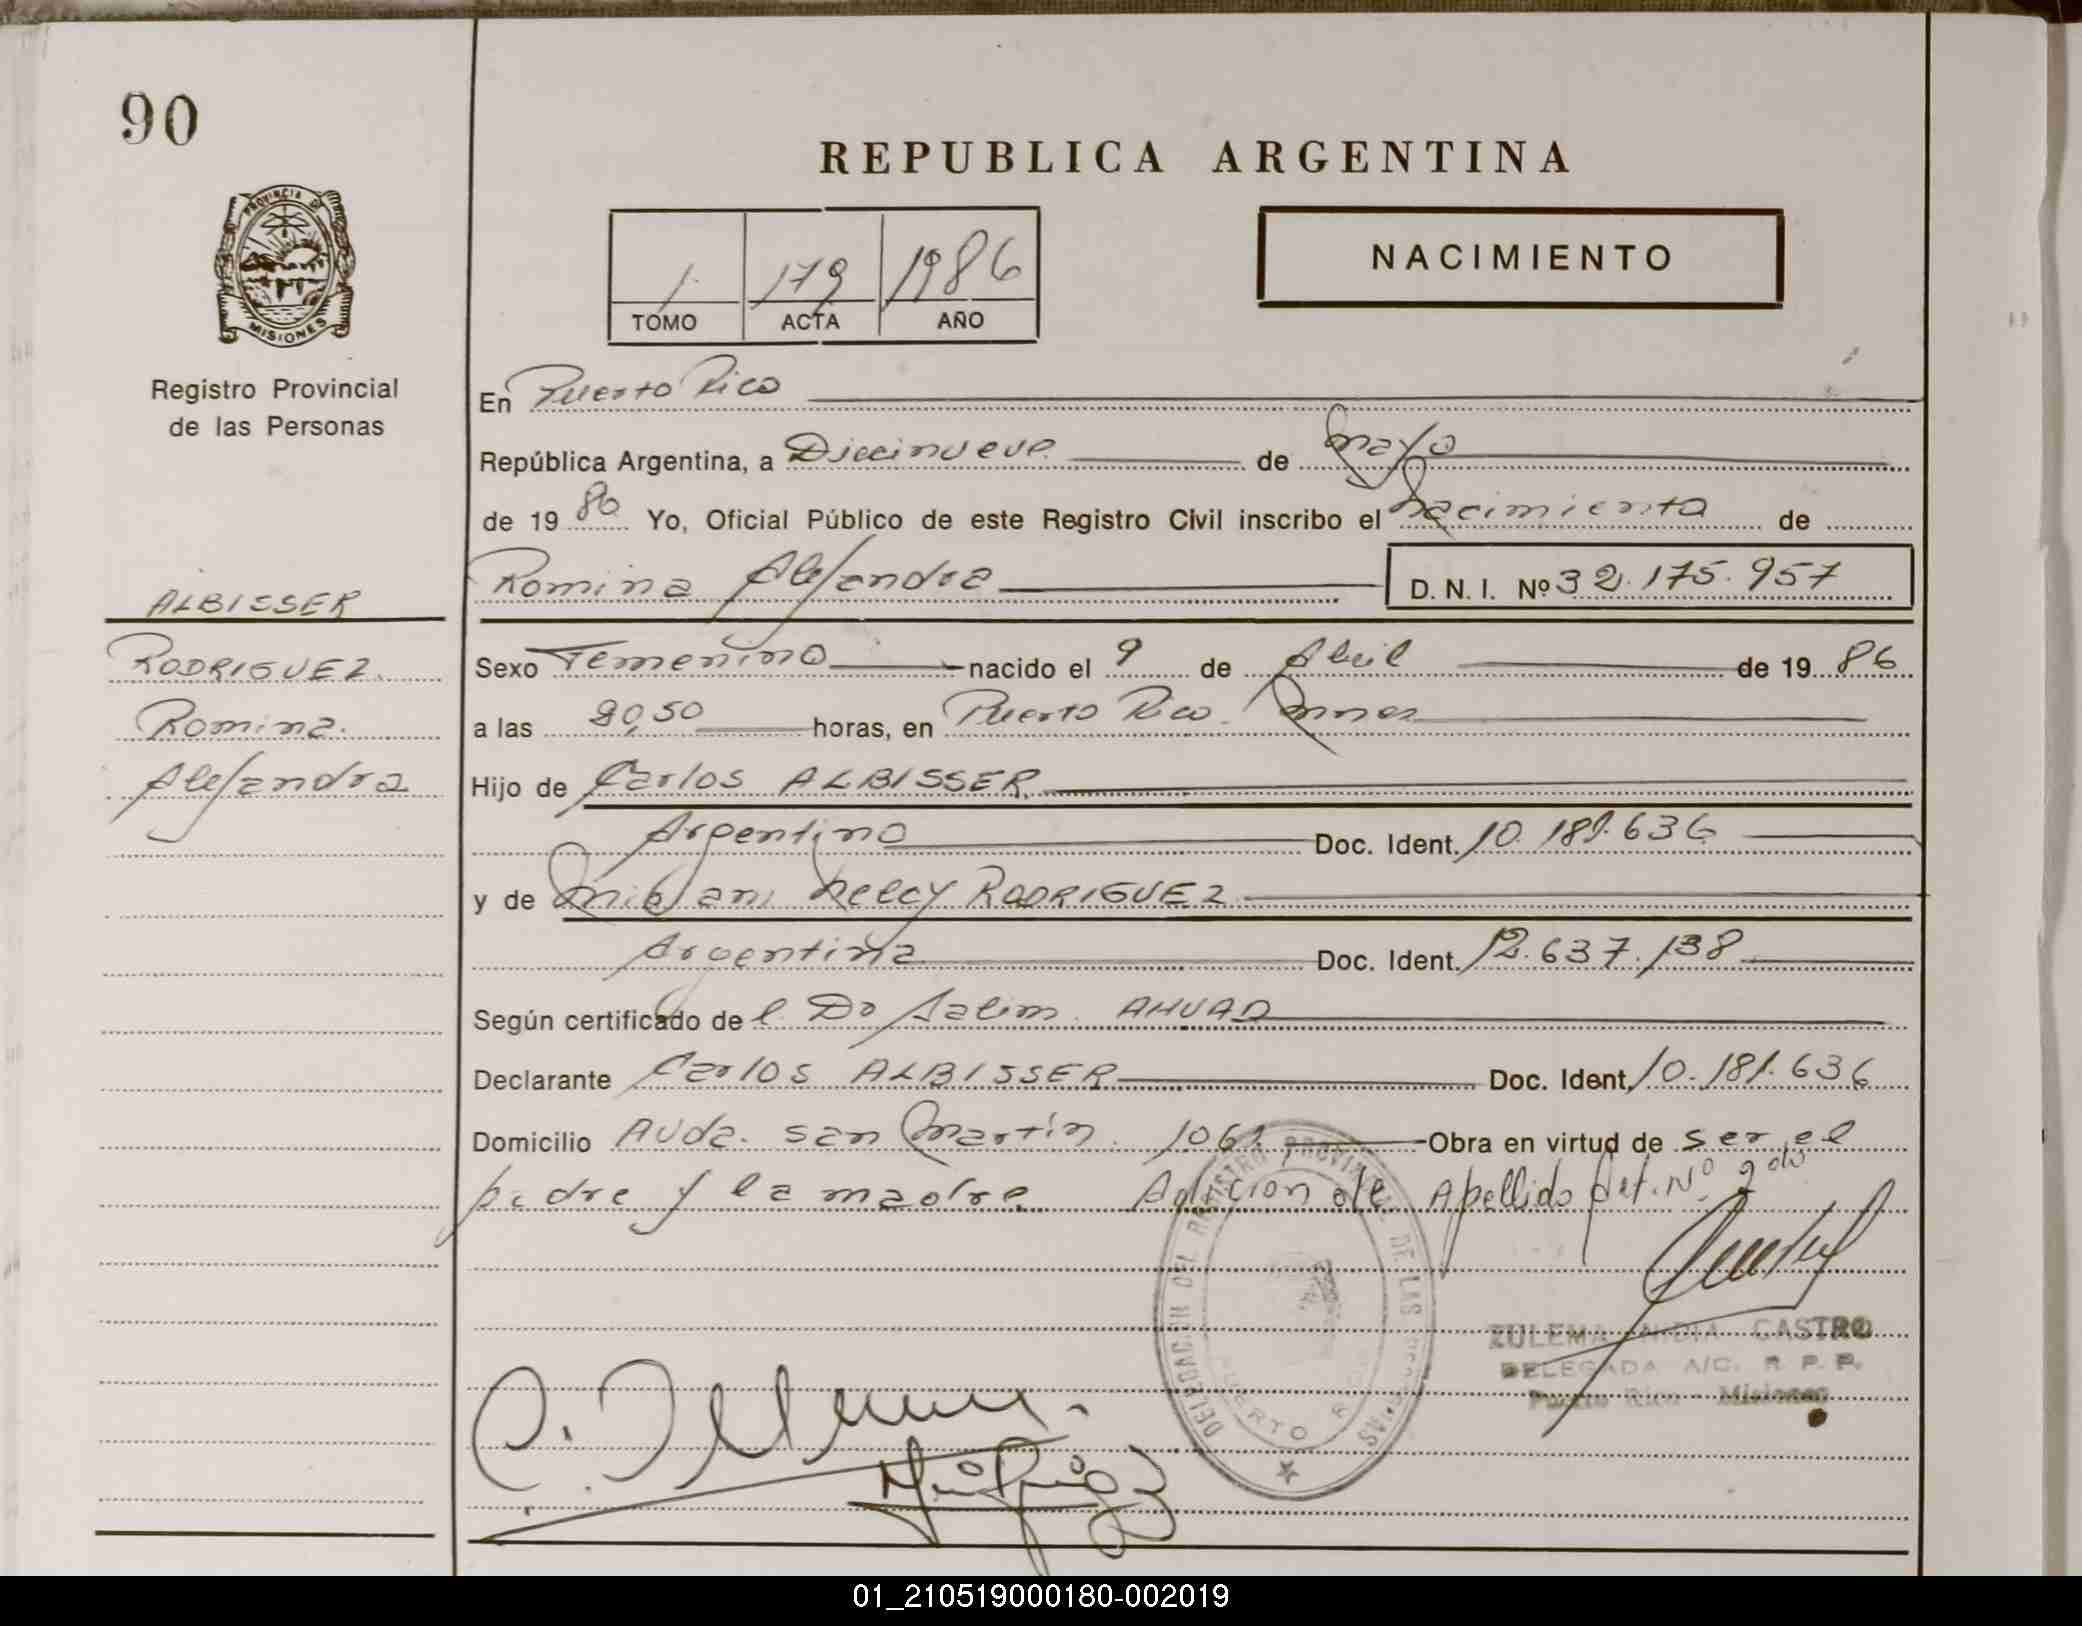 90
REPUBLICA ARGENTINA
PROVINCIA DE
MISIONES
Registro Provincial
de las Personas
1 179 1986
TOMO ACTA AÑO
NACIMIENTO
En Puerto Rico
República Argentina, a Diecinueve de Mayo
de 19 86 Yo, Oficial Público de este Registro Civil inscribo el Nacimiento de
Romina Alejandra D. N. I. Nº 32.175.957
ALBISSER
RODRIGUEZ
Romina
Alejandra
Sexo Femenino nacido el 9 de Abril de 19 86
a las 20,50 horas, en Puerto Rico. Mnes
Hijo de Carlos ALBISSER
Argentino Doc. Ident. 10.181.636
y de Miriam Nelcy RODRIGUEZ
Argentina Doc. Ident. 12.637.138
Según certificado de l Dr Salim AHUAD
Declarante Carlos ALBISSER Doc. Ident. 10.181.636
Domicilio Avda. San Martín 1061 Obra en virtud de ser el
padre y la madre Adición de Apellido Art. Nº 2do
DELEGACION DEL REGISTRO PROVINCIAL DE LAS PERSONAS
PUERTO RICO
ZULEMA NIDIA CASTRO
DELEGADA A/C. R. P. P.
Puerto Rico - Misiones
01_210519000180-002019